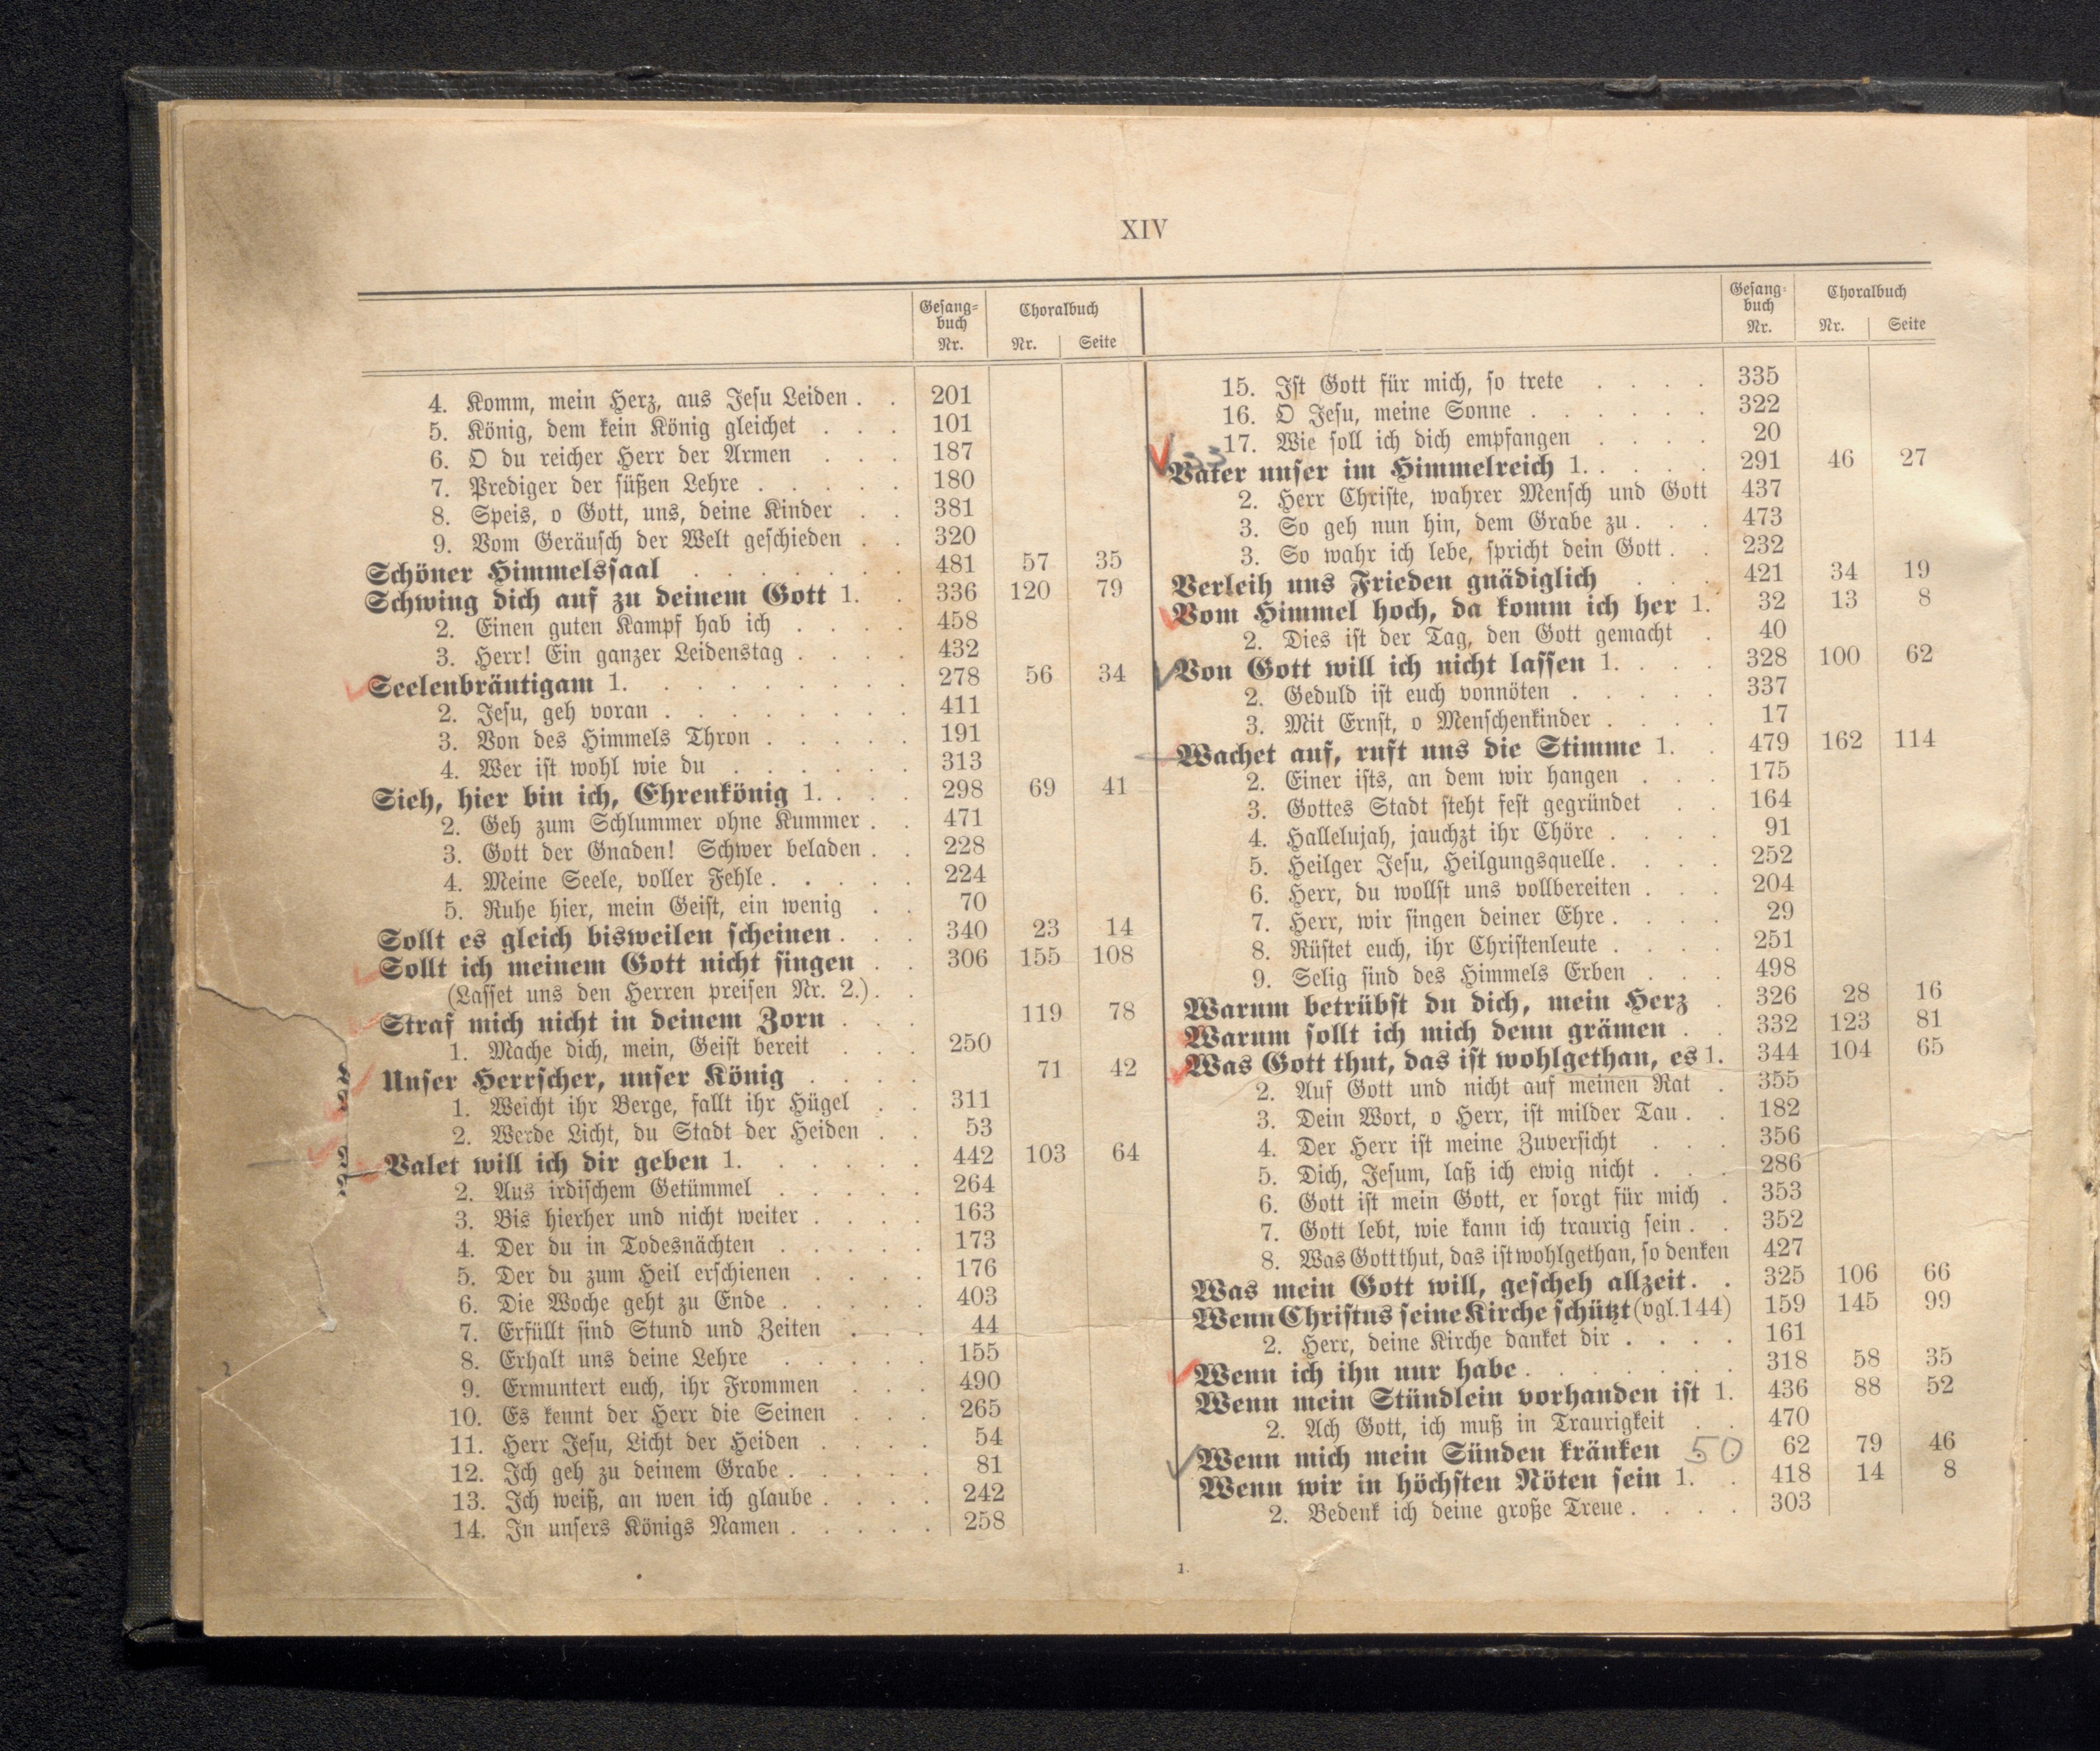 XIV
Gesang-
buch
Nr.
Choralbuch
Nr. Seite
4. Komm, mein Herz, aus Jesu Leiden . . 201
5. König, dem kein König gleichet . . . 101
6. O du reicher Herr der Armen . . . 187
7. Prediger der süßen Lehre . . . . . 180
8. Speis, o Gott, uns, deine Kinder . . 381
9. Vom Geräusch der Welt geschieden . . 320
Schöner Himmelssaal . . . . . . . 481 57 35
Schwing dich auf zu deinem Gott 1. . 336 120 79
2. Einen guten Kampf hab ich . . . . 458
3. Herr! Ein ganzer Leidenstag . . . . 432
Seelenbräutigam 1. . . . . . . . . 278 56 34
2. Jesu, geh voran . . . . . . . . 411
3. Von des Himmels Thron . . . . . 191
4. Wer ist wohl wie du . . . . . . 313
Sieh, hier bin ich, Ehrenkönig 1. . . . 298 69 41
2. Geh zum Schlummer ohne Kummer . . 471
3. Gott der Gnaden! Schwer beladen . . 228
4. Meine Seele, voller Fehle . . . . . 224
5. Ruhe hier, mein Geist, ein wenig . . 70
Sollt es gleich bisweilen scheinen . . . 340 23 14
Sollt ich meinem Gott nicht singen . . 306 155 108
(Lasset uns den Herren preisen Nr. 2.) . .
Straf mich nicht in deinem Zorn . . . 119 78
1. Mache dich, mein, Geist bereit . . . 250
Unser Herrscher, unser König . . . . 71 42
1. Weicht ihr Berge, fallt ihr Hügel . . 311
2. Werde Licht, du Stadt der Heiden . . 53
Valet will ich dir geben 1. . . . . . . 442 103 64
2. Aus irdischem Getümmel . . . . . 264
3. Bis hierher und nicht weiter . . . . 163
4. Der du in Todesnächten . . . . . 173
5. Der du zum Heil erschienen . . . . 176
6. Die Woche geht zu Ende . . . . . 403
7. Erfüllt sind Stund und Zeiten . . . 44
8. Erhalt uns deine Lehre . . . . . 155
9. Ermuntert euch, ihr Frommen . . . 490
10. Es kennt der Herr die Seinen . . . 265
11. Herr Jesu, Licht der Heiden . . . . 54
12. Ich geh zu deinem Grabe . . . . . 81
13. Ich weiß, an wen ich glaube . . . . 242
14. In unsers Königs Namen . . . . . 258
Gesang-
buch
Nr.
Choralbuch
Nr. Seite
15. Ist Gott für mich, so trete . . . . 335
16. O Jesu, meine Sonne . . . . . . 322
17. Wie soll ich dich empfangen . . . . 20
Vater unser im Himmelreich 1. . . . . 291 46 27
2. Herr Christe, wahrer Mensch und Gott 437
3. So geh nun hin, dem Grabe zu . . . 473
3. So wahr ich lebe, spricht dein Gott . . 232
Verleih uns Frieden gnädiglich . . . 421 34 19
Vom Himmel hoch, da komm ich her 1. 32 13 8
2. Dies ist der Tag, den Gott gemacht . 40
Von Gott will ich nicht lassen 1. . . . 328 100 62
2. Geduld ist euch vonnöten . . . . . 337
3. Mit Ernst, o Menschenkinder . . . . 17
Wachet auf, ruft uns die Stimme 1. . 479 162 114
2. Einer ists, an dem wir hangen . . . 175
3. Gottes Stadt steht fest gegründet . . 164
4. Hallelujah, jauchzt ihr Chöre . . . . 91
5. Heilger Jesu, Heilgungsquelle . . . . 252
6. Herr, du wollst uns vollbereiten . . . 204
7. Herr, wir singen deiner Ehre . . . . 29
8. Rüstet euch, ihr Christenleute . . . . 251
9. Selig sind des Himmels Erben . . . 498
Warum betrübst du dich, mein Herz . 326 28 16
Warum sollt ich mich denn grämen . . 332 123 81
Was Gott thut, das ist wohlgethan, es 1. 344 104 65
2. Auf Gott und nicht auf meinen Rat . 355
3. Dein Wort, o Herr, ist milder Tau . . 182
4. Der Herr ist meine Zuversicht . . . 356
5. Dich, Jesum, laß ich ewig nicht . . . 286
6. Gott ist mein Gott, er sorgt für mich . 353
7. Gott lebt, wie kann ich traurig sein . . 352
8. Was Gott thut, das ist wohlgethan, so denken 427
Was mein Gott will, gescheh allzeit . . 325 106 66
Wenn Christus seine Kirche schützt (vgl. 144) 159 145 99
2. Herr, deine Kirche danket dir . . . . 161
Wenn ich ihn nur habe . . . . . . . 318 58 35
Wenn mein Stündlein vorhanden ist 1. 436 88 52
2. Ach Gott, ich muß in Traurigkeit . . 470
Wenn mich mein Sünden kränken 50 62 79 46
Wenn wir in höchsten Nöten sein 1. . 418 14 8
2. Bedenk ich deine große Treue . . . . 303
1.